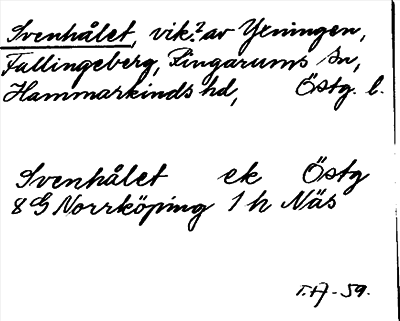 Svenhålet, vik? av Yrningen,
Fallingeberg, Ringarums sn,
Hammarkinds hd, Östg. l.
Svenhålet ek Östg
8 G Norrköping 1 h Näs
T.A-59.